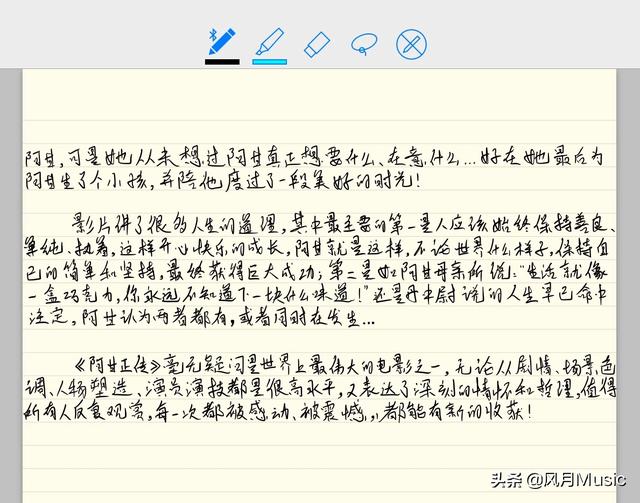 阿甘,可是她从来想过阿甘真正想要什么、在意什么...好在她最后为
阿甘生了个小孩,并陪他度过了一段美好的时光!
影片讲了很多人生的道理,其中最主要的第一是人应该始终保持善良、
单纯、执着,这样开心快乐的成长,阿甘就是这样,不论世界什么样子,保持自
己的简单和坚持,最终获得巨大成功;第二是如阿甘母亲所说:"生活就像
一盒巧克力,你永远不知道下一块什么味道!"还是丹中尉说的人生早已命中
注定,阿甘认为两者都有,或者同时在发生...
《阿甘正传》毫无疑问是世界上最伟大的电影之一,无论从剧情、场景、色
调、人物塑造、演员演技都是很高水平,又表达了深刻的情怀和哲理,值得
所有人反复观赏,每一次都被感动、被震撼,,都能有新的收获!
头条 @风月Music